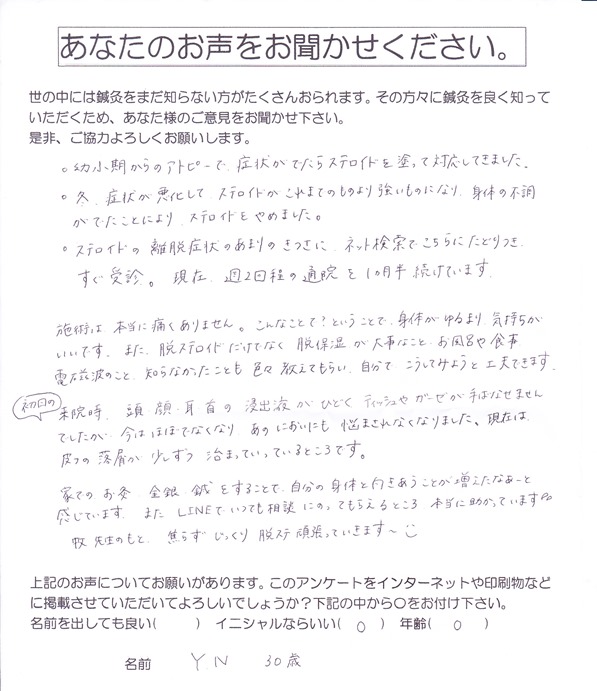 あなたのお声をお聞かせください。
世の中には鍼灸をまだ知らない方がたくさんおられます。その方々に鍼灸を良く知って
いただくため、あなた様のご意見をお聞かせ下さい。
是非、ご協力よろしくお願いします。
。幼小期からのアトピーで、症状がでたらステロイドを塗って対応してきました。
。冬、症状が悪化して、ステロイドがこれまでのものより強いものになり、身体の不調
がでたことにより、ステロイドをやめました。
。ステロイドの離脱症状のあまりのきつさに、ネット検索でこちらにたどりつき、
すぐ受診。現在、週2回程の通院を1ヶ月半続けています。
施術は本当に痛くありません。こんなことで？ということで、身体がゆるまり、気持ちが
いいです。また、脱ステロイドだけでなく脱保湿が大事なこと、お風呂や食事
電磁波のこと、知らなかったことも色々教えてもらい、自分でこうしてみようと工夫できます。
初回の
来院時、頭・顔・耳・首の浸出液がひどく、ティッシュやガーゼが手ばなせません
でしたが、今はほぼでなくなり、あのにおいにも悩まされなくなりました。現在は、
皮フの落屑が少しずつ治まっていっているところです。
家でのお灸、金銀鍼をすることで、自分の身体と向きあうことが増えたなぁーと
感じています。また、LINEでいつでも相談にのってもらえるところ、本当に助かっています
牧先生のもと、焦らずじっくり脱ステ頑張っていきます〜
上記のお声についてお願いがあります。このアンケートをインターネットや印刷物など
に掲載させていただいてよろしいでしょうか？下記の中から〇をお付け下さい。
名前を出しても良い( ) イニシャルならいい( ○ ) 年齢( ○ )
名前 YN 30歳